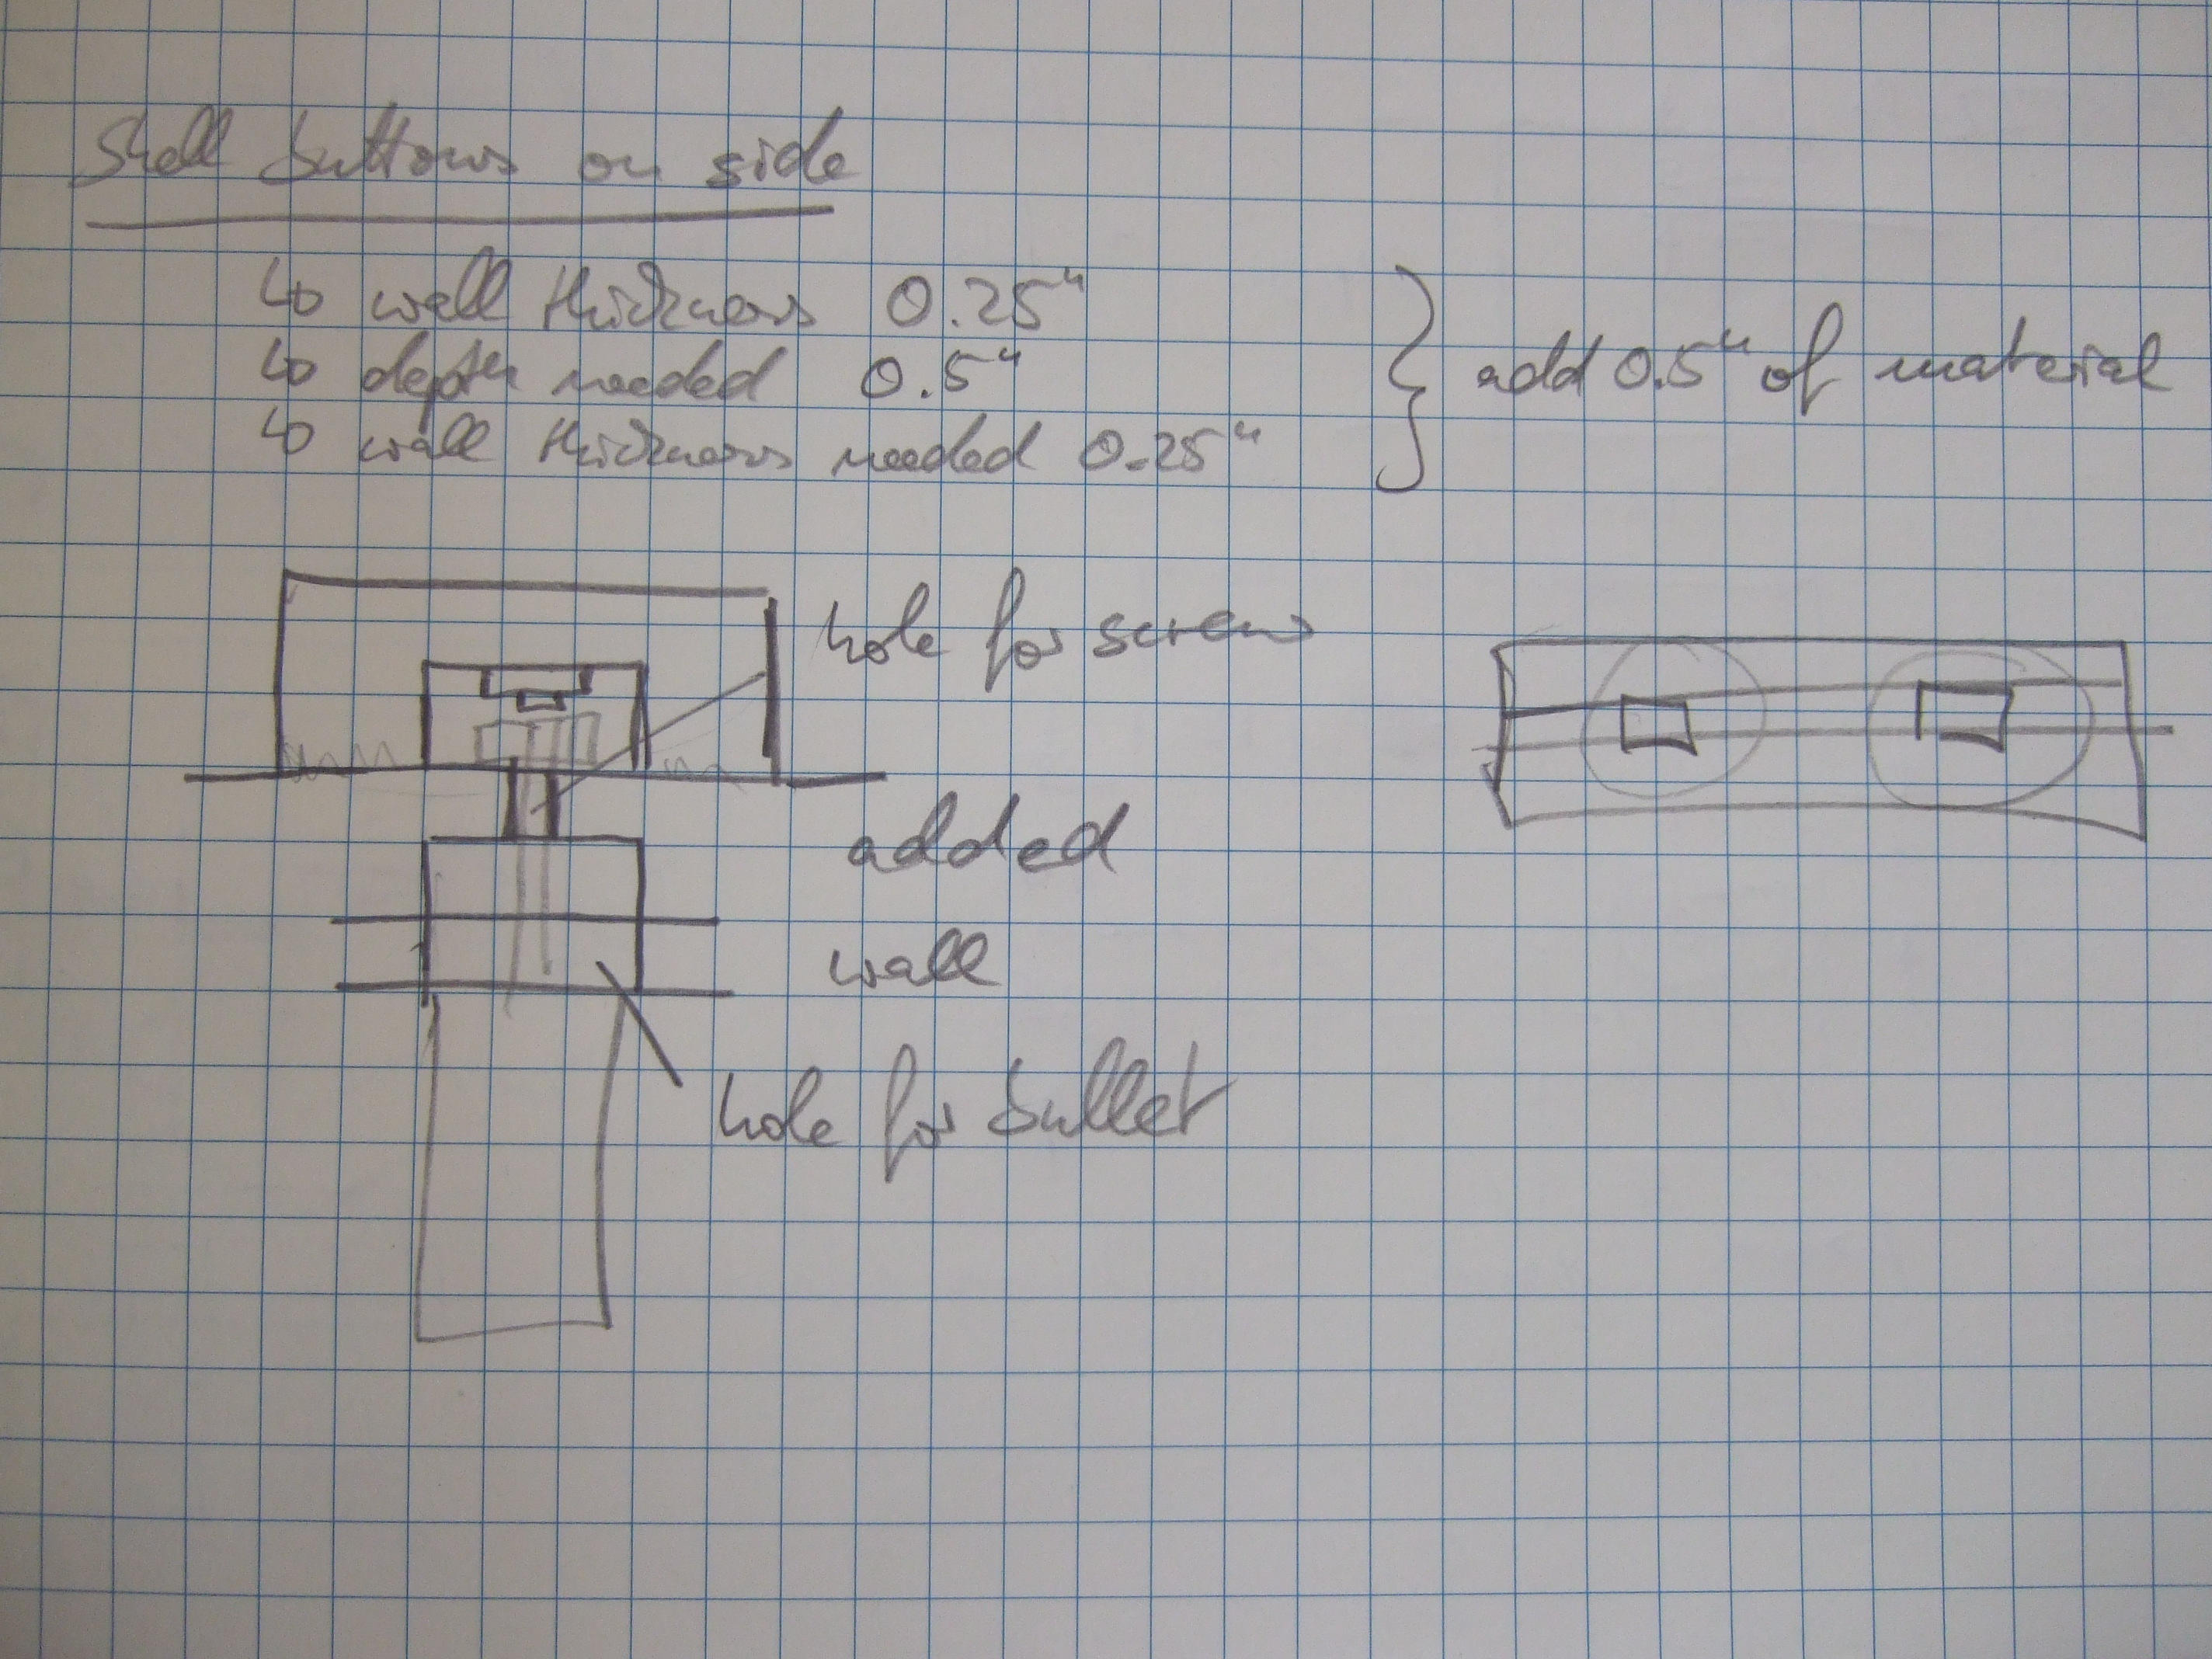 Shell buttons on side
↳ wall thickness 0.25"
↳ depth needed 0.5"
↳ wall thickness needed 0.25"
} add 0.5" of material
hole for screw
added
wall
hole for bullet